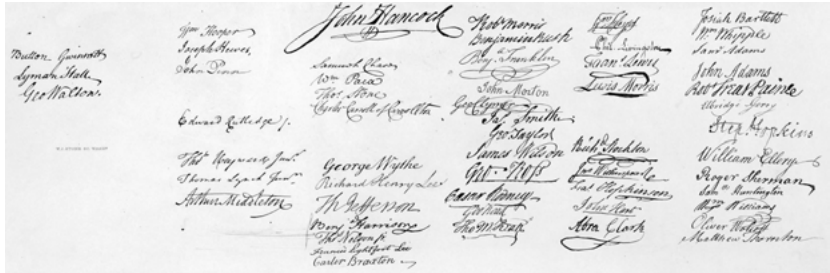 Button Gwinnett
Lyman Hall
Geo Walton.
Wm Hooper
Joseph Hewes,
John Penn
Edward Rutledge /.
Thos Heyward Junr.
Thomas Lynch Junr.
Arthur Middleton
John Hancock
Samuel Chase
Wm Paca
Thos Stone
Charles Carroll of Carrollton
George Wythe
Richard Henry Lee
Th Jefferson
Benj Harrison
Thos Nelson jr.
Francis Lightfoot Lee
Carter Braxton
Robt Morris
Benjamin Rush
Benj. Franklin
John Morton
Geo Clymer
Jas. Smith
Geo. Taylor
James Wilson
Geo. Ross
Caesar Rodney
Geo Read
Tho M:Kean
Wm Floyd
Phil. Livingston
Frans. Lewis
Lewis Morris
Richd. Stockton
Jno Witherspoon
Fras. Hopkinson
John Hart
Abra Clark
Josiah Bartlett
Wm Whipple
Saml Adams
John Adams
Robt Treat Paine
Elbridge Gerry
Step. Hopkins
William Ellery
Roger Sherman
Saml Huntington
Wm Williams
Oliver Wolcott
Matthew Thornton